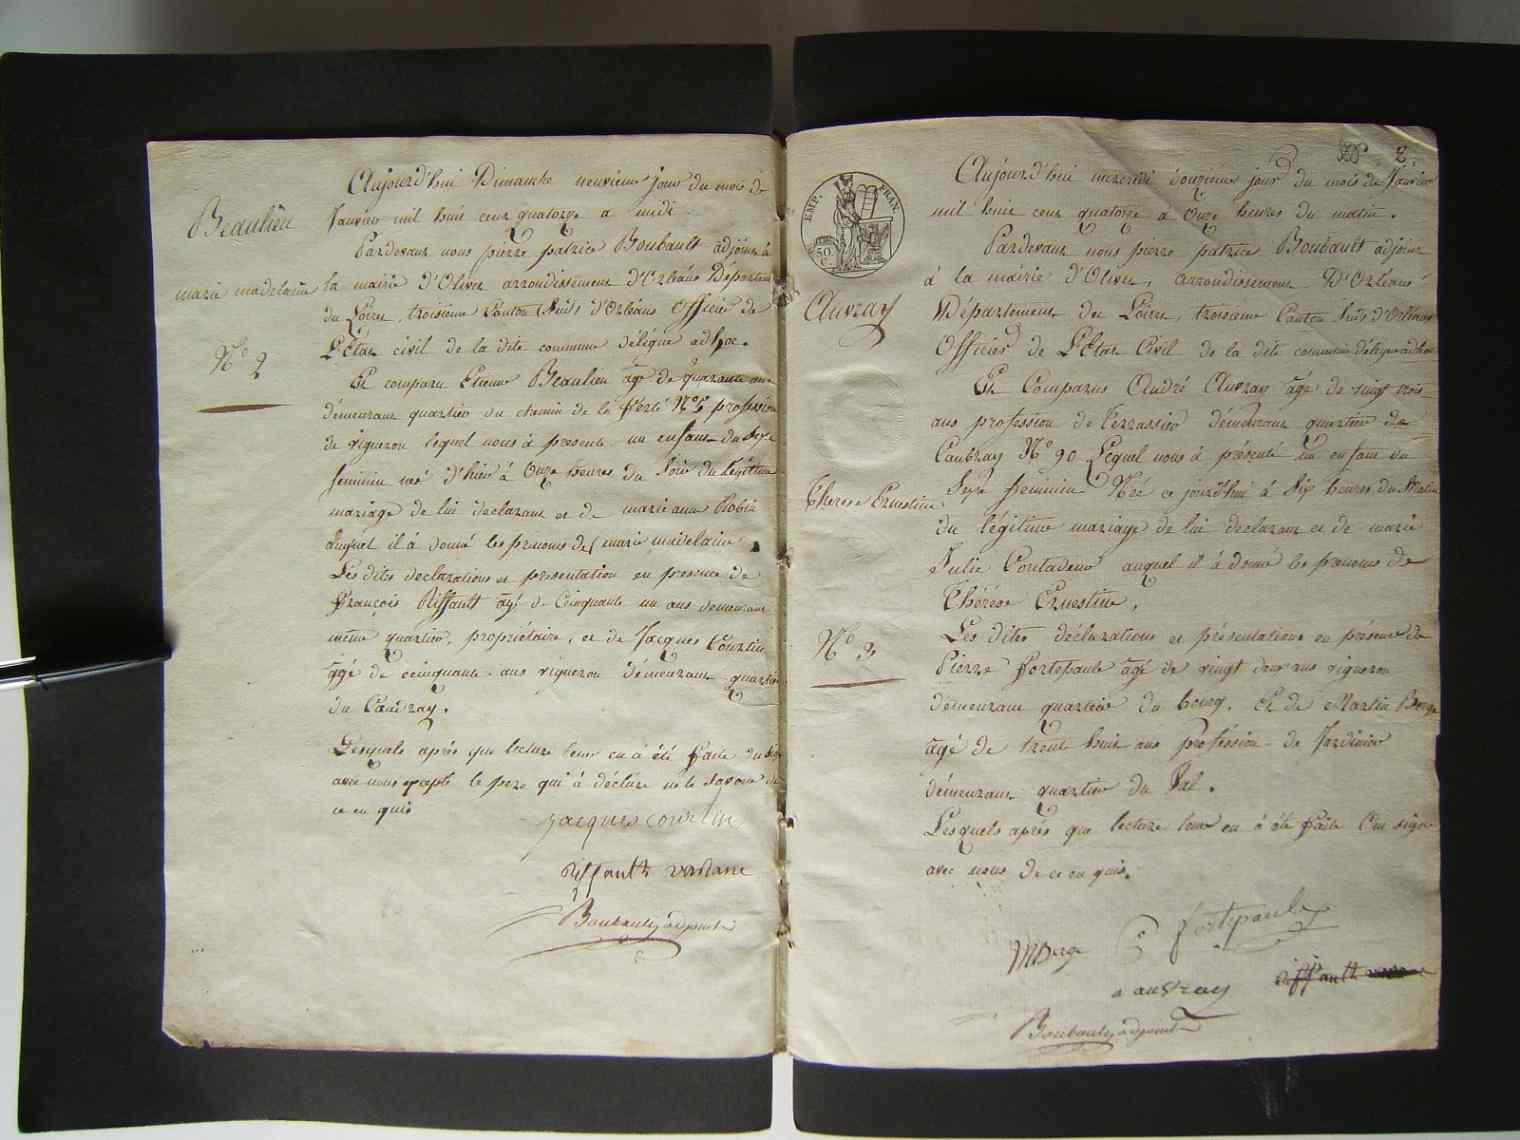 Beaulieu
marie madelaine
N.o 2
Aujourd'hui Dimanche neuvieme jour du mois de
Janvier mil huit cent quatorze a midi
Pardevant nous pierre patrice Boubault adjoint à
la mairie d'Olivet arrondissement d'Orléans Département
du Loiret, troisieme Canton Sud d'Orléans officier de
L'Etat civil de la dite commune délégué adhoc.
Est comparu Etienne Beaulieu âgé de quarante ans
démeurant quartier du chemin de la ferté N.o 5 profession
de vigneron lequel nous à presenté un enfant du Sexe
feminin né d'hier à Onze heures du Soir du légitime
mariage de lui declarant et de marie anne Robin
auquel il à donné les prenoms de marie madelaine
Les dites declarations et présentation en presence de
François Riffault âgé de Cinquante un ans demeurant
même quartier, propriétaire, et de Jacques Courtin
âgé de cinquante ans vigneron démeurant quartier
du Caubray.
Lesquels après que lecture leur en à été faite
avec nous excepté le pere qui à déclaré ne le savoir de
ce en quis
jacques courtin
Riffault
Boubault adjoint
2.
EMP. FRAN.
50 C.
Auvray
Therese Ernestine
N.o 3
Aujourd'hui mercredi douzieme jour du mois de Janvier
mil huit cent quatorze à Onze heures du matin.
Pardevant nous pierre patrice Boubault adjoint
à la mairie d'Olivet, arrondissement d'Orléans
Département du Loiret, troisieme Canton Sud d'Orléans
Officier de L'Etat Civil de la dite commune délégué adhoc
Est Comparus André Auvray âgé de vingt trois
ans profession de Terrassier démeurant quartier de
Caubray N.o 90 Lequel nous à présenté un enfant du
Sexe feminin Née ce jourd'hui à Six heures du Matin
du légitime mariage de lui declarant et de marie
Julie Contadeur auquel il à donné les prenoms de
Thérése Ernestine,
Les dites déclarations et présentations en présence de
Pierre fortepaule âgé de vingt deux ans vigneron
demeurant quartier du bourg. Et de Martin Berge
âgé de trente huit ans profession de Jardinier
démeurant quartier du Val.
Lesquels après que lecture leur en à été faite Ont signé
avec nous de ce en quis.
fortepaule
MBerge
a auvray
Riffault
Boubault adjoint